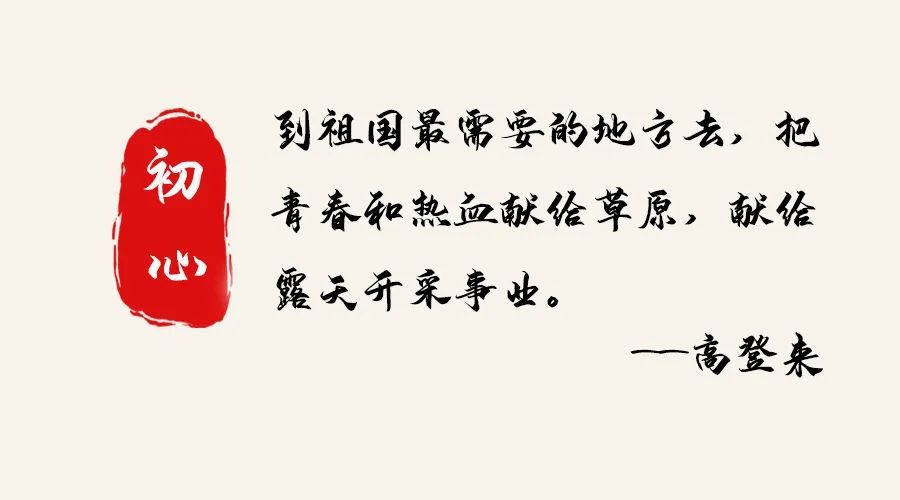 初心
到祖国最需要的地方去，把
青春和热血献给草原，献给
露天开采事业。
——高登来